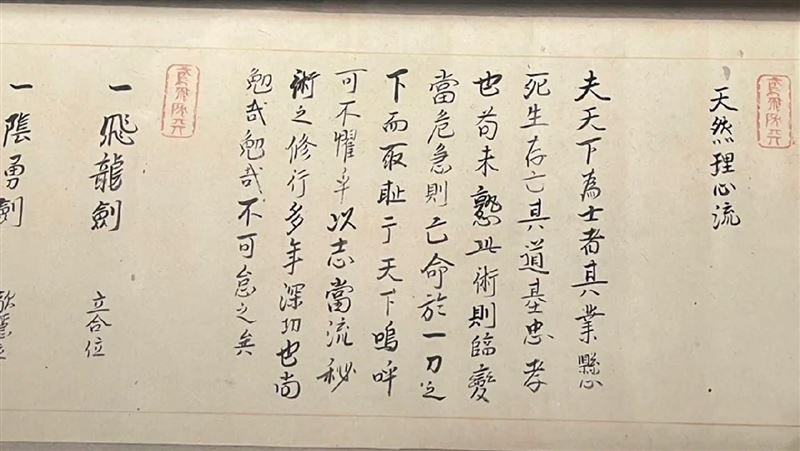 天然理心流
夫天下為士者其業懸
死生存亡其道基忠孝
也苟未懃此術則臨變
當危急則亡命於一刀之
下而取恥于天下嗚呼
可不懼乎以志當流秘
術之修行多年深切也尚
勉哉勉哉不可怠之矣
一飛龍劍 立合位
一陰勇劍